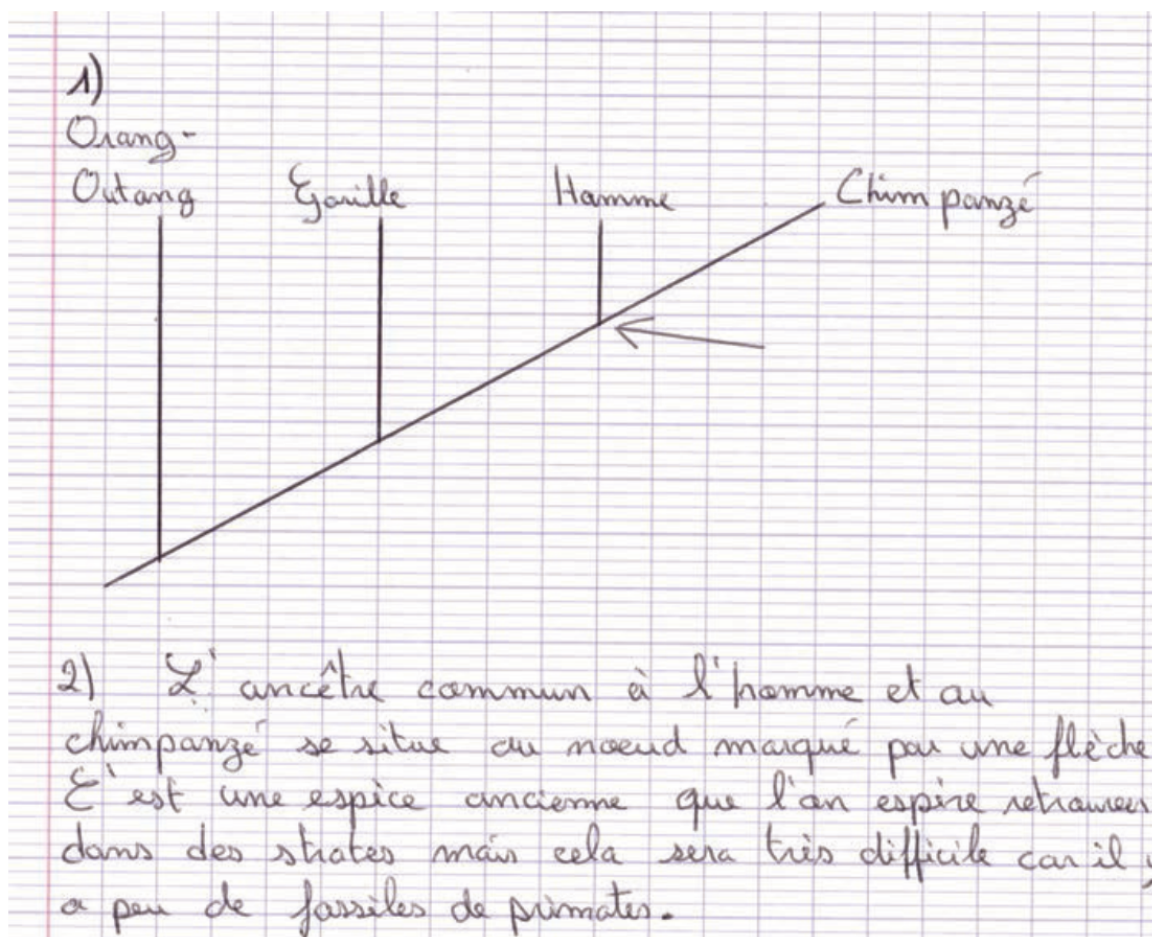 1)
Orang-
Outang Gorille Homme Chimpanzé
2) L'ancêtre commun à l'homme et au
chimpanzé se situe au noeud marqué par une flèche
C'est une espèce ancienne que l'on espère retrouver
dans des strates mais cela sera très difficile car il y
a peu de fossiles de primates.